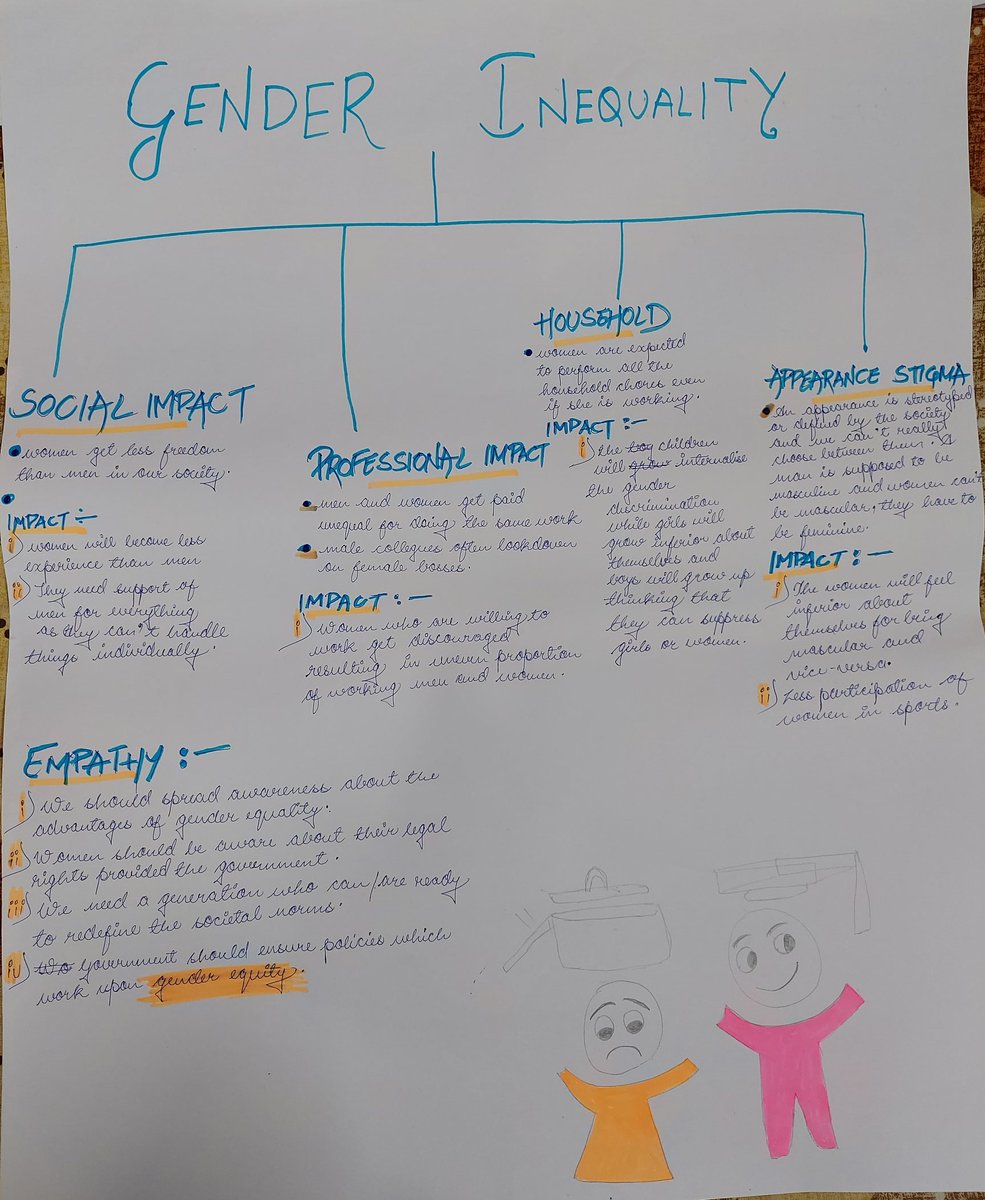 GENDER INEQUALITY
SOCIAL IMPACT
women get less freedom
than men in our society.
IMPACT :-
i) women will become less
experience than men
ii) They need support of
men for everything
as they can't handle
things individually.
PROFESSIONAL IMPACT
men and women get paid
unequal for doing the same work
male collegues often lookdown
on female bosses.
IMPACT :-
i) Women who are willing to
work get discouraged
resulting in uneven proportion
of working men and women.
HOUSEHOLD
women are expected
to perform all the
household chores even
if she is working.
IMPACT :-
i) the boy children
will grow internalise
the gender
discrimination
while girls will
grow inferior about
themselves and
boys will grow up
thinking that
they can suppress
girls or women.
APPEARANCE STIGMA
An appearance is streotyped
or defined by the society
and we can't really
choose between them. A
man is supposed to be
masculine and women can't
be mascular, they have to
be feminine.
IMPACT :-
i) The women will feel
inferior about
themselves for bring
mascular and
vice-versa.
ii) Less participation of
women in sports.
EMPATHY :-
i) We should spread awareness about the
advantages of gender equality.
ii) Women should be aware about their legal
rights provided the government.
iii) We need a generation who can/are ready
to redefine the societal norms.
iv) Wo government should ensure policies which
work upon gender equity.